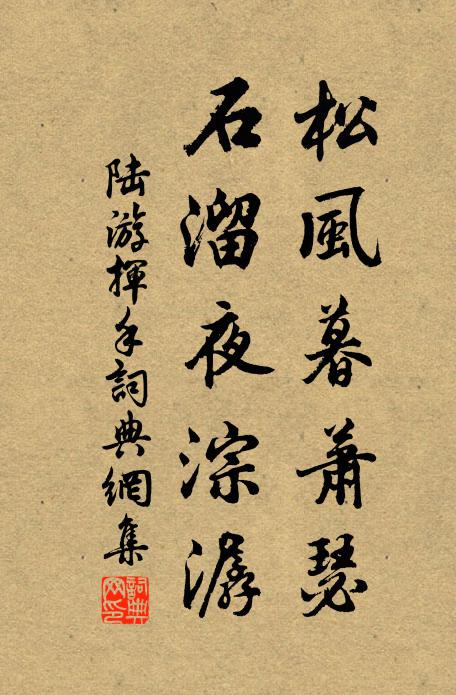 松風暮蕭瑟
石溜夜淙潺
陆游揮手詞典網集
詞典网印